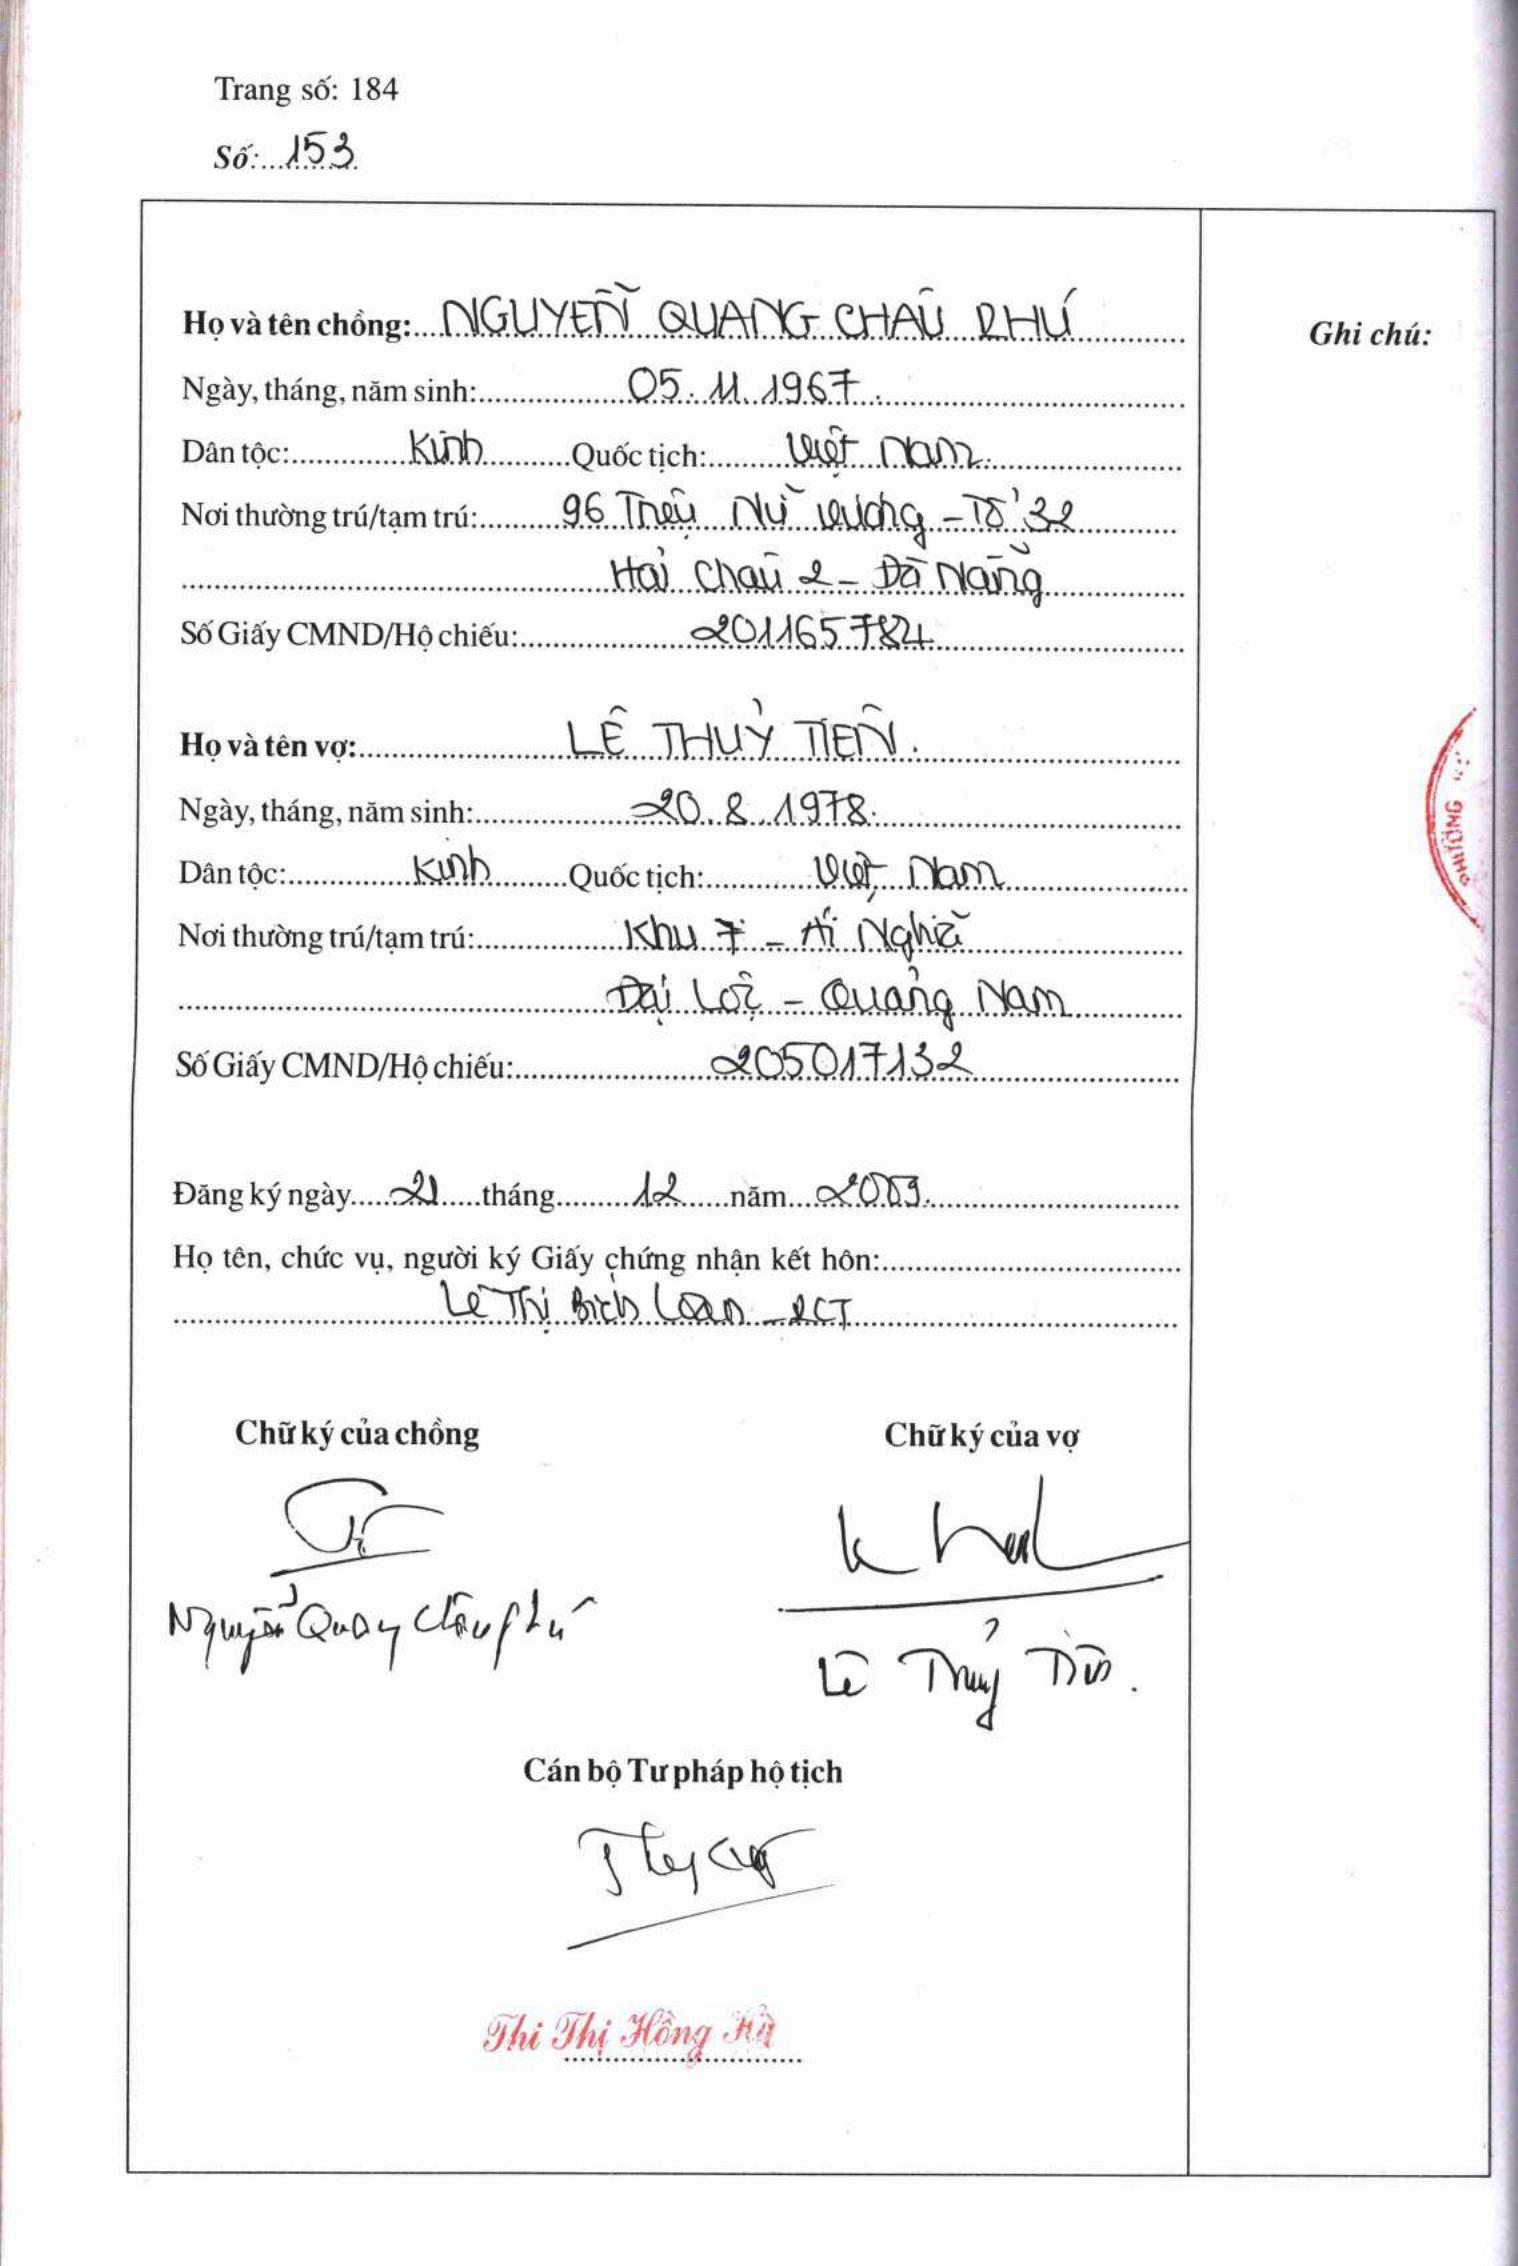 Trang số: 184
Số: 153
Họ và tên chồng: NGUYỄN QUANG CHÂU PHÚ
Ghi chú:
Ngày, tháng, năm sinh: 05.11.1967.
Dân tộc: Kinh Quốc tịch: Việt Nam
Nơi thường trú/tạm trú: 96 Triệu Nữ Vương - Tổ 32
Hải Châu 2 - Đà Nẵng
Số Giấy CMND/Hộ chiếu: 201165784
Họ và tên vợ: LÊ THUỶ TIÊN.
Ngày, tháng, năm sinh: 20.8.1978.
Dân tộc: Kinh Quốc tịch: Việt Nam
Nơi thường trú/tạm trú: Khu 7 - Ái Nghĩa
Đại Lộc - Quảng Nam
Số Giấy CMND/Hộ chiếu: 205017132
Đăng ký ngày 21 tháng 12 năm
Họ tên, chức vụ, người ký Giấy chứng nhận kết hôn:
Lê Thị Bích Loan - PCT
Chữ ký của chồng
Chữ ký của vợ
Nguyễn Quang Châu Phú
Lê Thuỷ Tiên.
Cán bộ Tư pháp hộ tịch
Thi Thị Hồng Hà